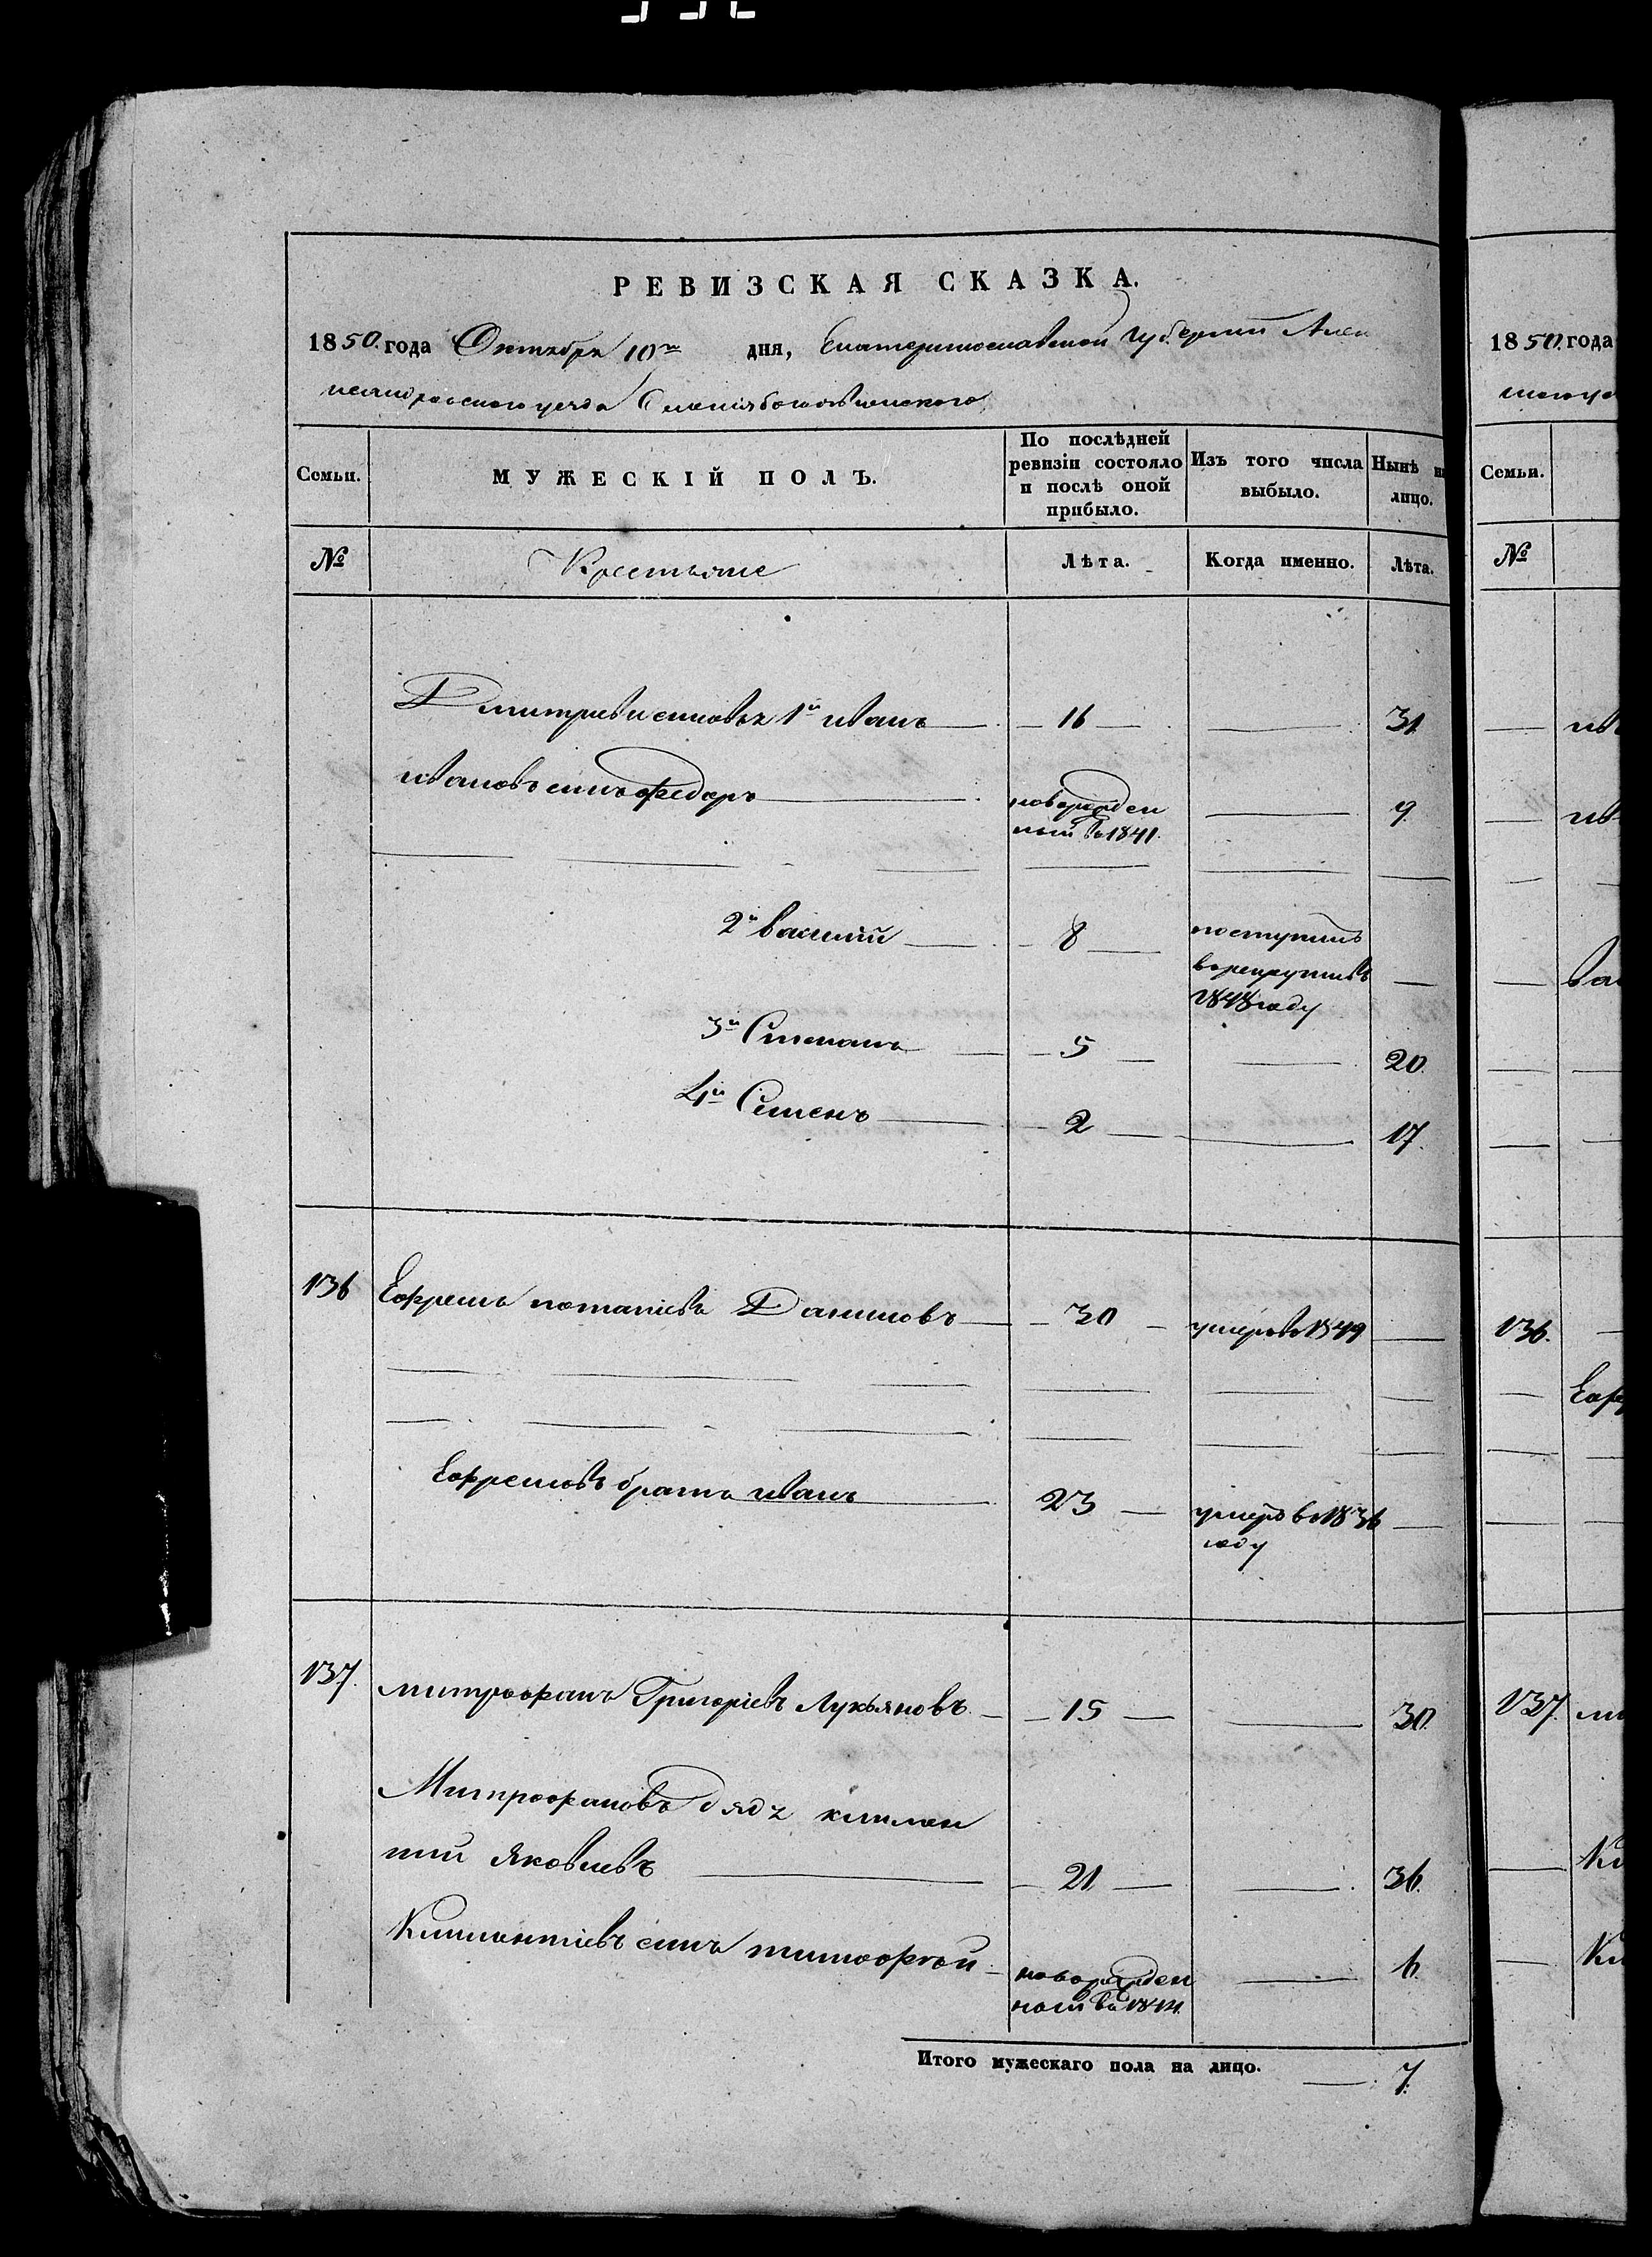 РЕВИЗСКАЯ СКАЗКА.
1850. года Октября 10го дня, Екатеринославской губернии Алек
сандровского уезда
Семьи. МУЖЕСКІЙ ПОЛЪ. По послѣдней ревизіи состояло и послѣ оной прибыло. Изъ того числа выбыло. Нынѣ на лицо.
№ Крестьяне Лѣта. Когда именно. Лѣта.
Дмитриевы сыновья 1й иванъ 16 31
ивановъ сынъ Федоръ новорожден 9
ный въ 1841.
2й василий 8 поступилъ
в рекруты въ
1848 году
3й Степанъ 5 20
4й Семенъ 2 17.
136 Ефремъ потапіевъ Даниловъ 30 умеръ въ 1849
Ефремовъ братъ иванъ 23 умеръ въ 1836
году
137. митрофанъ Григоріевъ Лукьяновъ 15 30.
Митрофановъ дядя климен
тий Яковлевъ 21 36.
Климентіевъ сынъ тимофей новорожден 6.
ный въ 1844
Итого мужескаго пола на лицо. 7.
1850. года
Семьи.
№
136.
137.